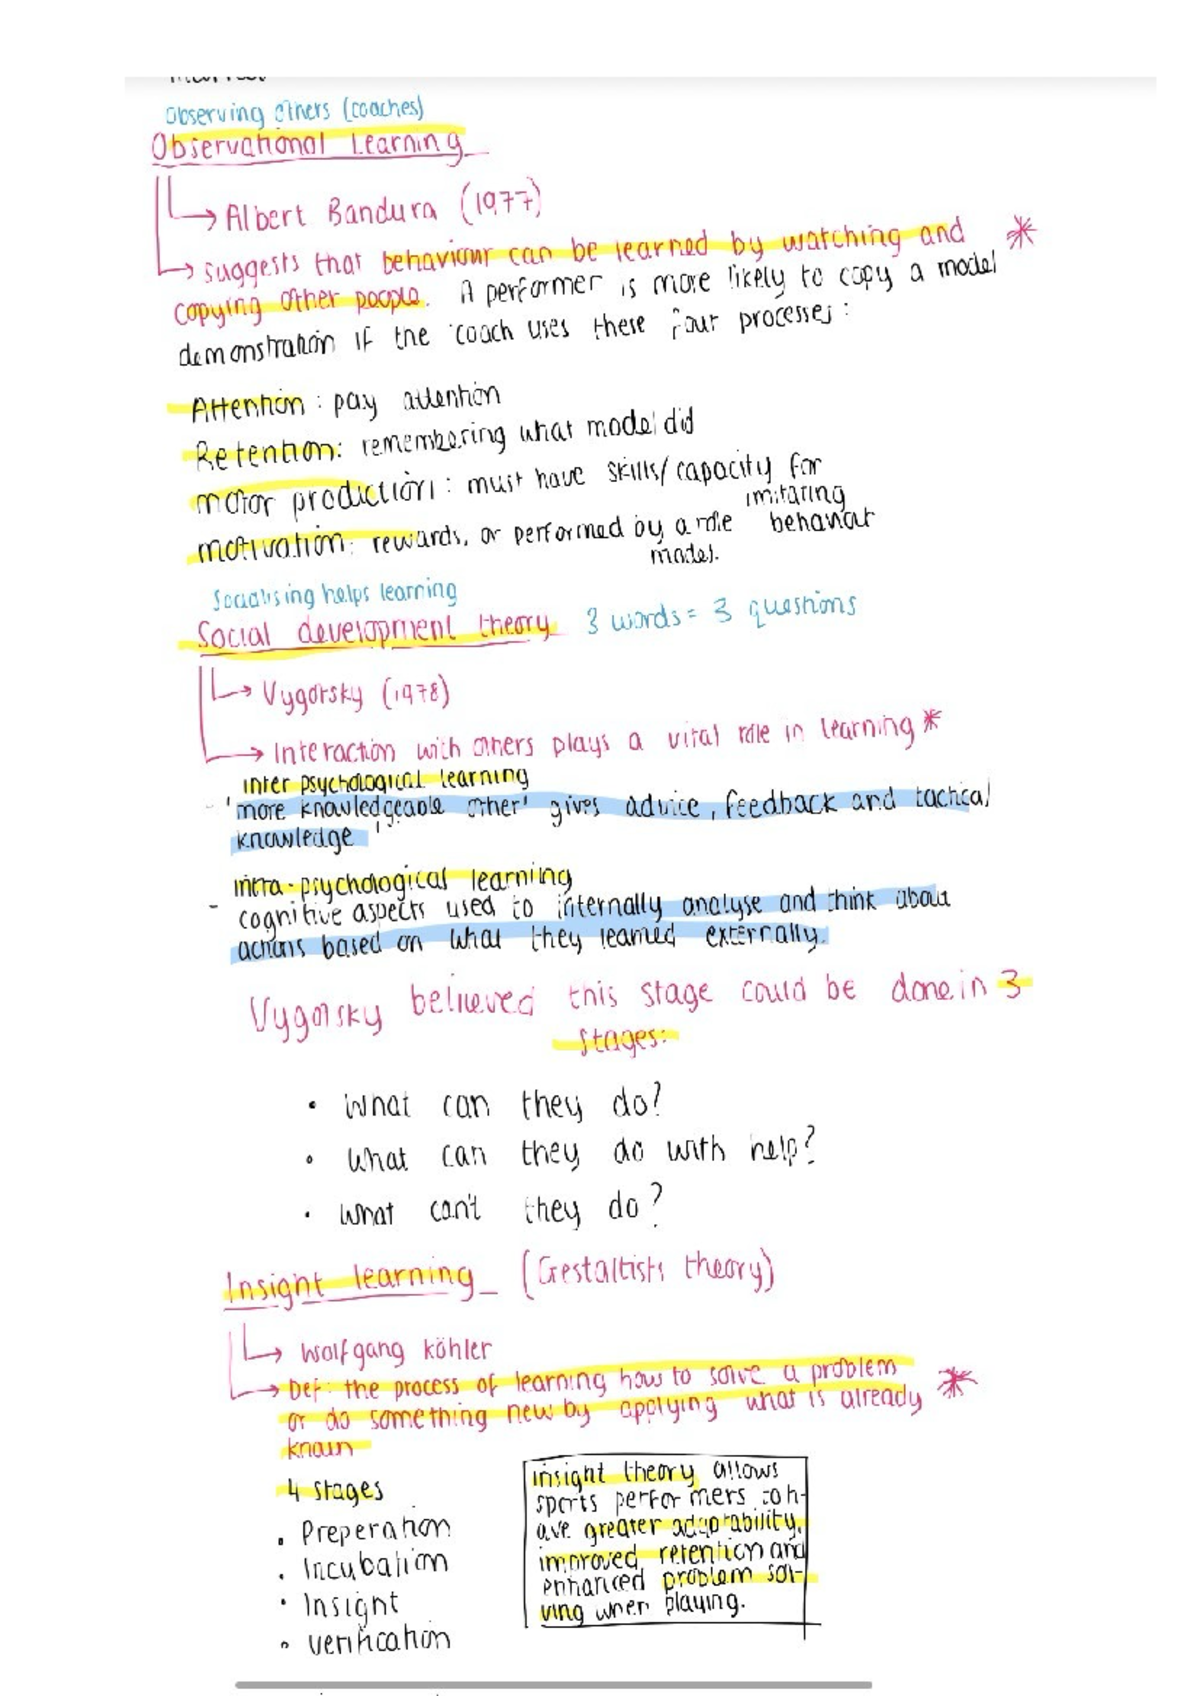 Observing others (coaches)
Observational Learning
→ Albert Bandura (1977)
→ suggests that behaviour can be learned by watching and *
copying other people. A performer is more likely to copy a model
demonstration if the coach uses these four processes:
Attention: pay attention
Retention: remembering what model did
motor production: must have skills/capacity for
imitating
behaviour
motivation: rewards, or performed by a role
model.
Socialising helps learning
Social development theory 3 words = 3 questions
→ Vygotsky (1978)
→ Interaction with others plays a vital role in learning *
inter psychological learning
- 'more knowledgeable other' gives advice, feedback and tactical
knowledge '
intra-psychological learning
- cognitive aspects used to internally analyse and think about
actions based on what they learned externally.
Vygotsky believed this stage could be done in 3
stages:
• What can they do?
• What can they do with help?
• What can't they do?
Insight learning (Gestaltists theory)
→ Wolfgang köhler
→ Def: the process of learning how to solve a problem
or do something new by applying what is already *
known
4 stages
• Preperation
• Incubation
• Insight
• verification
insight theory allows
sports performers to h-
ave greater adaptability,
improved retention and
enhanced problem sol-
ving when playing.